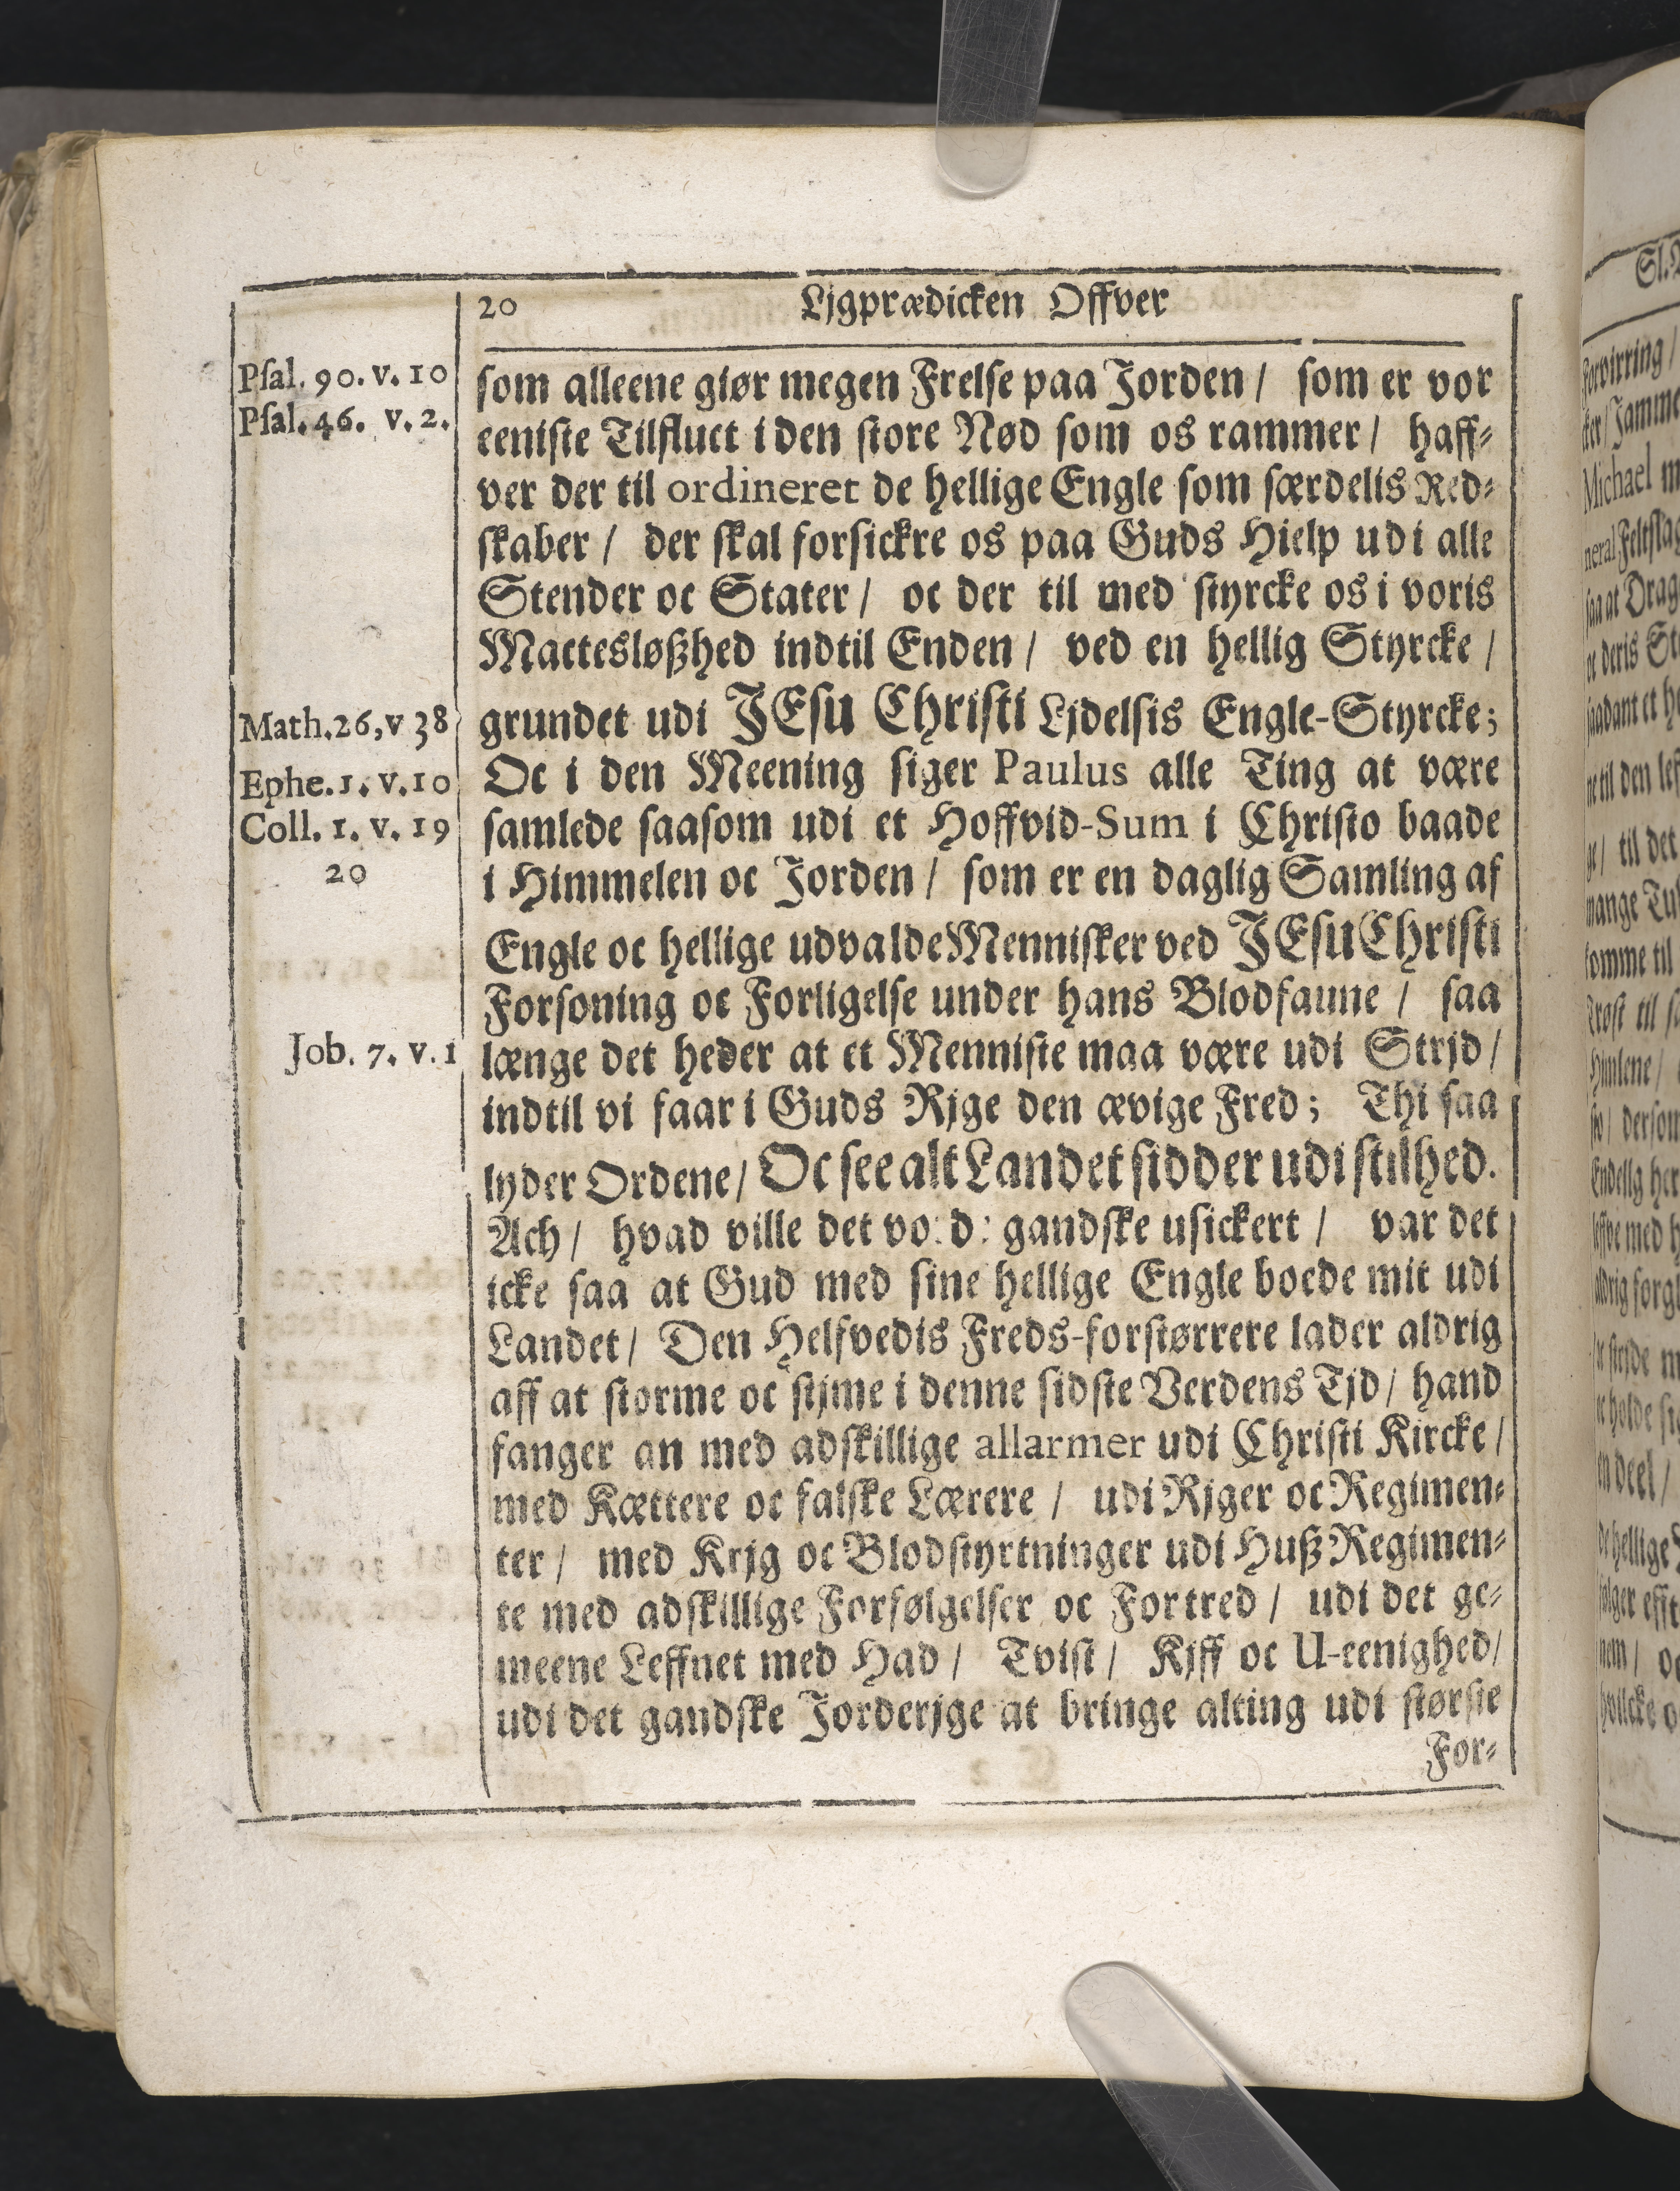 20 Ljgprædicken Offver
Psal. 90. v. 10
Psal. 46. v. 2.
Math. 26, v 38
Ephe. 1. v. 10
Coll. 1. v. 19
20
Job. 7. v. 1
som alleene giør megen Frelse paa Jorden / som er vor
eeniste Tilfluct i den store Nød som os rammer / haff-
ver der til ordineret de hellige Engle som særdelis Red-
skaber / der skal forsickre os paa Guds Hielp udi alle
Stender oc Stater / oc der til med styrcke os i voris
Mactesløßhed indtil Enden / ved en hellig Styrcke /
grundet udi JEsu Christi Ljdelsis Engle-Styrcke;
Oc i den Meening siger Paulus alle Ting at være
samlede saasom udi et Hoffvid-Sum i Christo baade
i Himmelen oc Jorden / som er en daglig Samling af
Engle oc hellige udvalde Mennisker ved JEsu Christi
Forsoning oc Forligelse under hans Blodfanne / saa
længe det heder at et Menniste maa være udi Strjd /
indtil vi faar i Guds Rjge den ævige Fred; Thi saa
lyder Ordene / Oc see alt Landet sidder udi stilhed.
Ach / hvad ville det vo: d: gandske usickert / var det
icke saa at Gud med sine hellige Engle boede mit udi
Landet / Den Helfvedis Freds-forstørrere lader aldrig
aff at storme oc stjme i denne sidste Verdens Tjd / hand
fanger an med adskillige allarmer udi Christi Kircke /
med Kættere oc falske Lærere / udi Rjger oc Regimen-
ter / med Krjg oc Blodstyrtninger udi Huß Regimen-
te med adskillige Forfølgelser oc Fortred / udi det ge-
meene Leffnet med Had / Tvist / Kjff oc U-eenighed /
udi det gandske Jorderjge at bringe alting udi største
For-